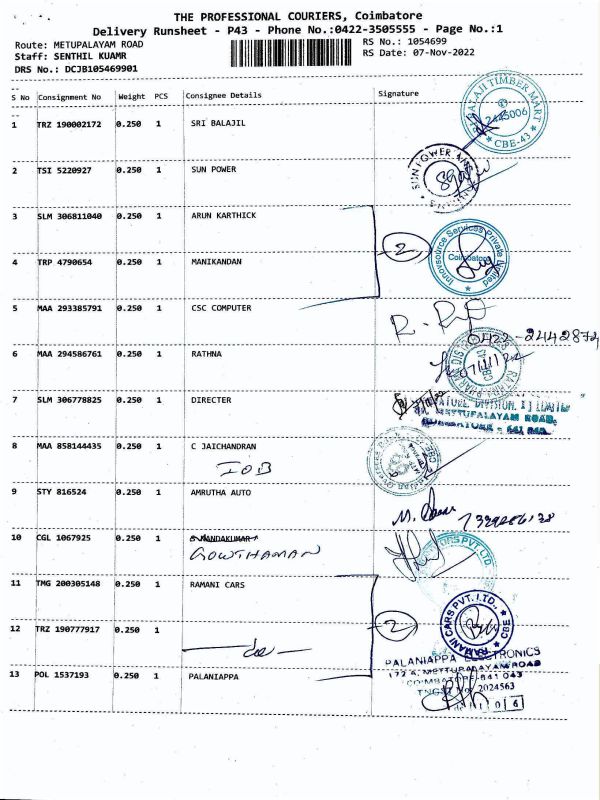 THE PROFESSIONAL COURIERS, Coimbatore
Delivery Runsheet - P43 - Phone No.:0422-3505555 - Page No.:1
Route: METUPALAYAM ROAD
RS No.: 1054699
Staff: SENTHIL KUAMR
RS Date: 07-Nov-2022
DRS No.: DCJB105469901
S No Consignment No Weight PCS Consignee Details Signature
1 TRZ 190002172 0.250 1 SRI BALAJIL
BALAJI TIMBER MART
2445006
CBE-43
2 TSI 5220927 0.250 1 SUN POWER
SUN POWER
3 SLM 306811040 0.250 1 ARUN KARTHICK
2
Innovsource Services Private Limited
Coimbatore
4 TRP 4790654 0.250 1 MANIKANDAN
5 MAA 293385791 0.250 1 CSC COMPUTER
0422-2442874
6 MAA 294586761 0.250 1 RATHNA
CBE-43
7 SLM 306778825 0.250 1 DIRECTER
METTUPALAYAM ROAD,
8 MAA 858144435 0.250 1 C JAICHANDRAN
IOB
9 STY 816524 0.250 1 AMRUTHA AUTO
10 CGL 1067925 0.250 1 S NANDAKUMAR
GOWTHAMAN
11 TMG 200305148 0.250 1 RAMANI CARS
2
RAMANI CARS PVT. LTD., CBE
12 TRZ 190777917 0.250 1
do
PALANIAPPA ELECTRONICS
172 A, METTUPALAYAM ROAD
COIMBATORE-641 043
13 POL 1537193 0.250 1 PALANIAPPA
TNGST No. 2024563